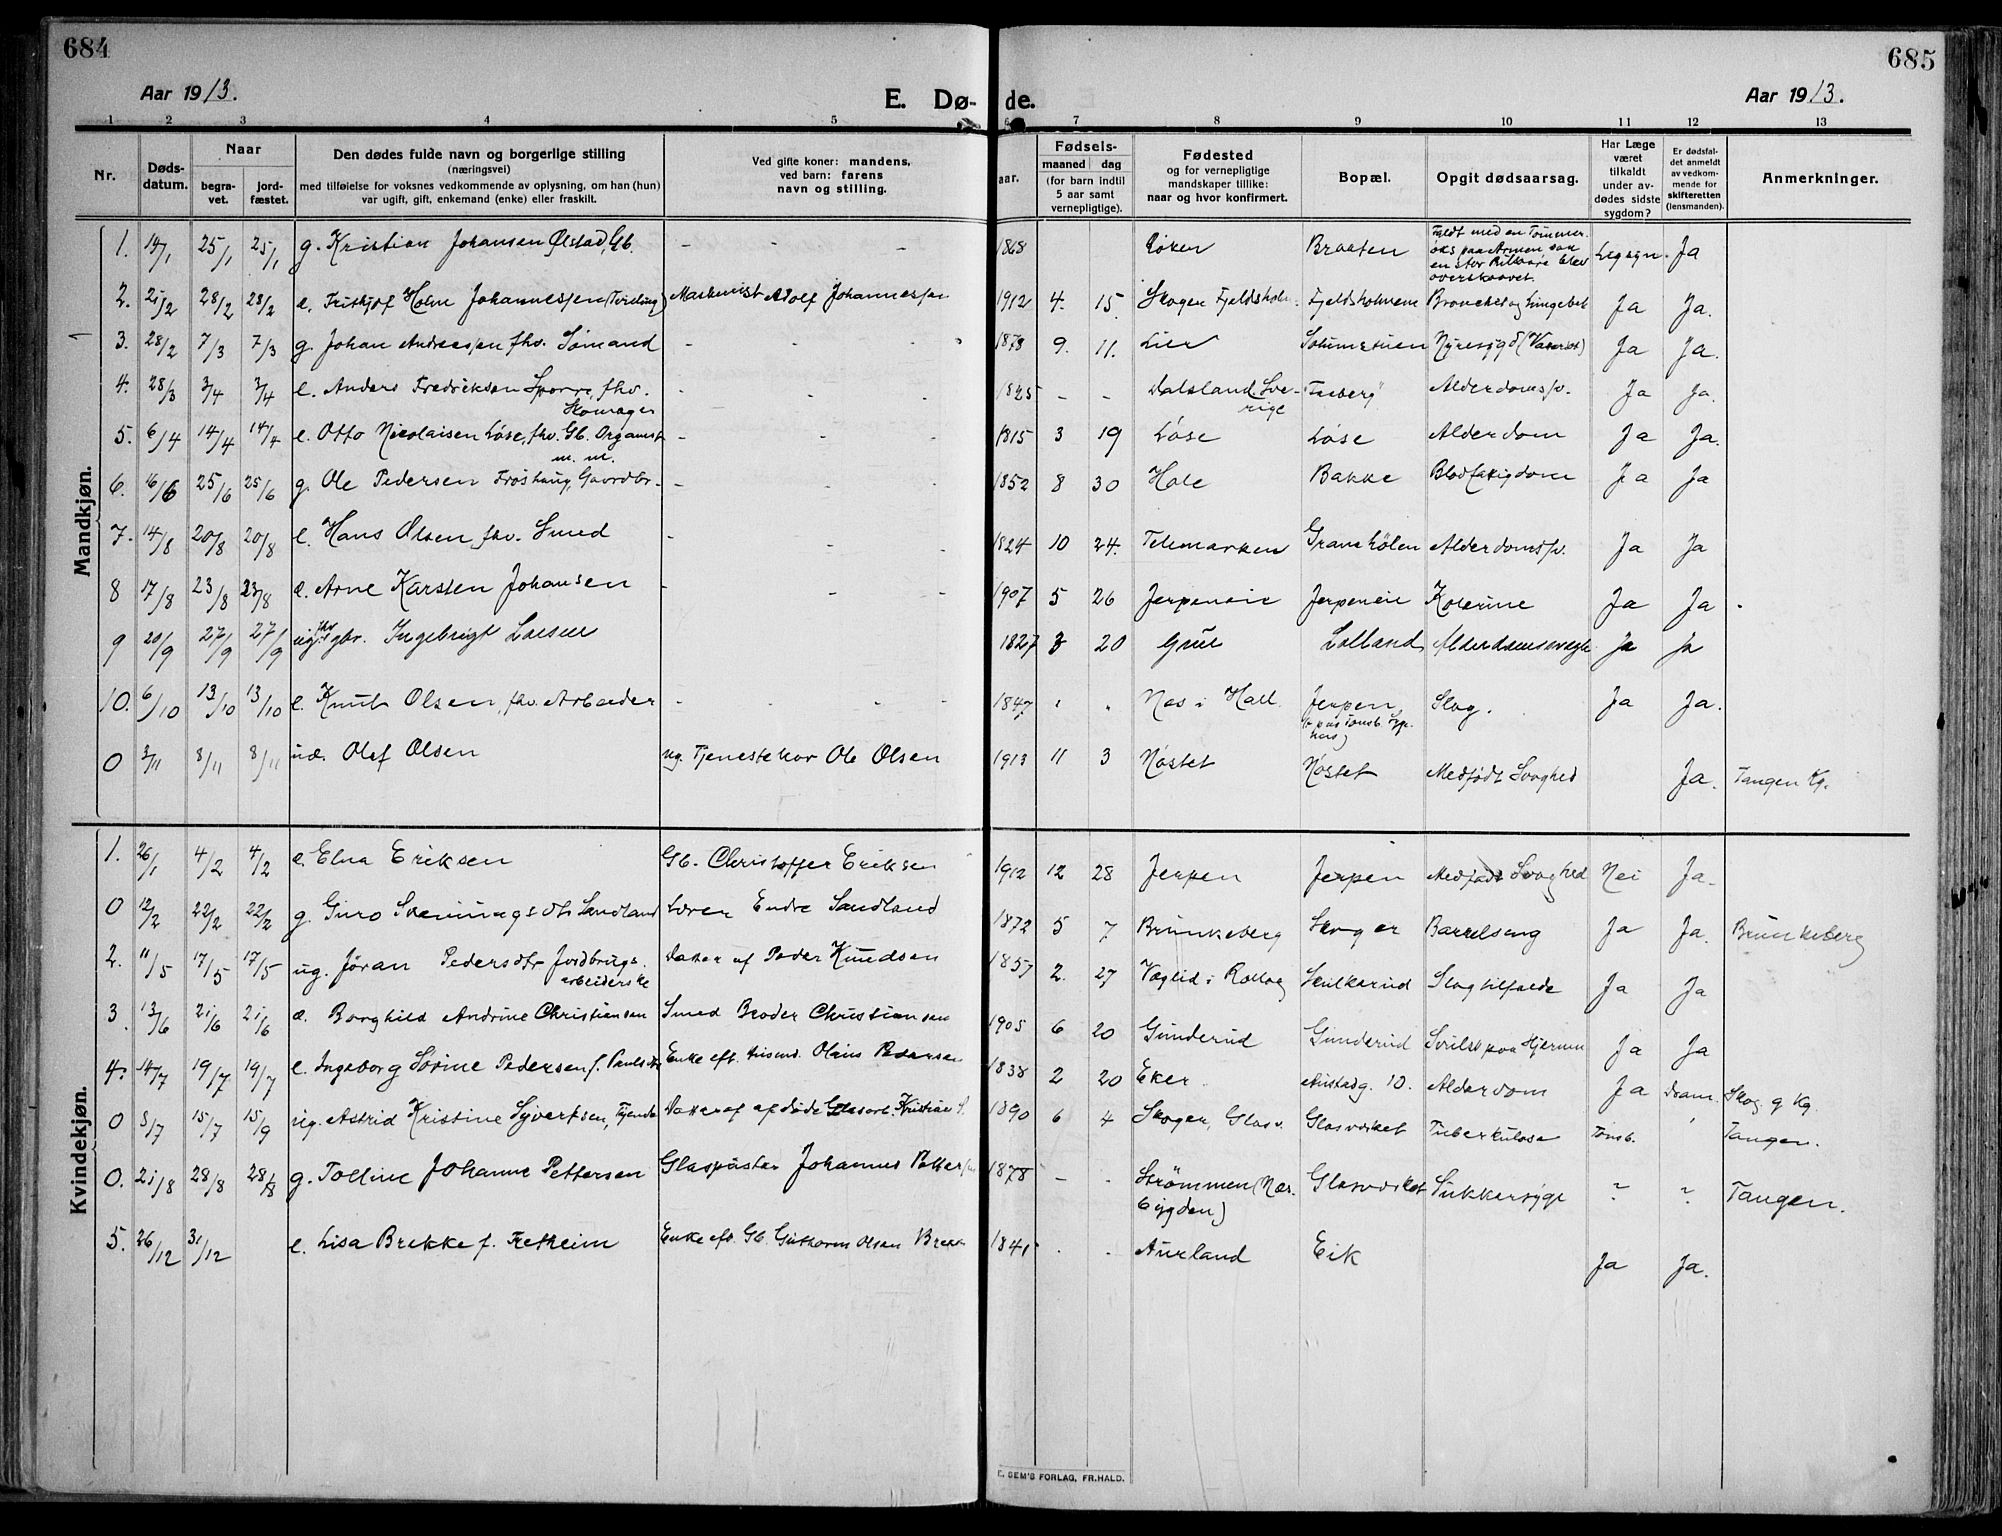 684
685
Aar 1913.
E. Dø- de.
Aar 1913.
1 2 3 4 5 6 7 8 9 10 11 12 13
Nr.
Døds-
datum.
Naar
begra-
vet.
jord-
fæstet.
Den dødes fulde navn og borgerlige stilling
(næringsvei)
med tilføielse for voksnes vedkommende av oplysning, om han (hun)
var ugift, gift, enkemand (enke) eller fraskilt.
Ved gifte koner: mandens,
ved barn: farens
navn og stilling.
aar.
Fødsels-
maaned dag
(for barn indtil
5 aar samt
vernepligtige).
Fødested
og for vernepligtige
mandskaper tillike:
naar og hvor konfirmert.
Bopæl.
Opgit dødsaarsag.
Har Læge
været
tilkaldt
under av-
dødes sidste
sygdom?
Er dødsfal-
det anmeldt
av vedkom-
mende for
skifteretten
(lensmanden).
Anmerkninger.
Mandkjøn.
1. 14/1 25/1 25/1 g. Kristian Johansen Ølstad, Gb. - - - 1868 Røken Braaten Faldt med en Tømmer-
øks paa Armen saa
en stor Pulsaare blev
overskaaret. Ja
2. 21/2 28/2 28/2 e. Fritjof Holm Johannessen (Tvilling) Maskinist Adolf Johannessen 1912 4. 15. Skoger Fjeldsholm. Fjeldsholmene Bronchit og Lungebet. Ja Ja.
3. 28/2 7/3 7/3 g. Johan Andreassen fhv. Sømand - - 1873 9. 11. Lier Solumstuen Nyresygd (Vatersot) Ja Ja.
4. 28/3 3/4 3/4 e. Anders Fredriksen Sporre, fhv.
Skomager - - - 1825 - - Dalsland, Sve-
rige "Fuberg" Alderdomssv. Ja Ja.
5. 6/4 14/4 14/4 e. Otto Nicolaisen Løse, fhv. Gb. Organist
m. m. - - - 1815 3 19 Løse Løse Alderdom Ja Ja.
6. 16/6 25/6 25/6 g. Ole Pedersen Frøshaug, Gaardbr. - - - 1852 8 30 Hole Bakke Ja Ja
7. 14/8 20/8 20/8 e. Hans Olsen, fhv. Smed - - - 1824 10 24. Telemarken Alderdomssv. Ja Ja
8 17/8 23/8 23/8 e. Arne Karsten Johansen - - - 1907 5 26 Jerpeneie Jerpeneie Kolerine Ja Ja .
9 20/9 27/9 27/9 ug. fhv. gbr. Ingebrigt Larsen 1827 3 20 Grue Lolland Alderdomssvagh. Ja Ja
10. 6/10 13/10 13/10 e. Knut Olsen, fhv. Arbeider - - - 1847 " " Nes i Hall. Jerpen
(paa Tønsb. Syke-
hus) Slag. Ja Ja.
0 3/11 8/11 8/11 ud. Olaf Olsen ug. Tjenestekar Ole Olsen 1913 11 3 Nøstet Nøstet Medfødt Svaghed Ja. Tangen Kg.
Kvindekjøn.
1. 26/1 4/2 4/2 e. Elna Eriksen Gb. Christoffer Eriksen 1912 12 28 Jerpen Jerpen Medfødt Svaghed Nei Ja.
0 12/2 22/2 22/2 g. Guro Sveinungsdtr Sandland Lærer Endre Sandland 1872 5 7 Brunkeberg Skoger Barselseng Ja Ja. Brunkeberg
2. 11/5 17/5 17/5 ug. Jøran Pedersdtr Jordbrugs-
arbeiderske Datter af Peder Knudsen 1857 2. 27 Veglid i Rollag Skulkerud Slagtilfælde Ja Ja
3. 13/6 21/6 21/6 e. Borghild Andrine Christiansen Smed Beder Christiansen 1905 6 20 Gunderud Gunderud Svulst paa Hjernen Ja Ja
4. 14/7 19/7 19/7 e. Ingeborg Sørine Pedersen f. Paulsdtr Enke eft. Husmd. Olaus Pedersen 1838 2 20 Eker. Austadg. 10. Alderdom Ja Dram. Skog. g Kg.
0 8/7 15/7 15/9 ug. Astrid Kristine Syvertsen, Tjende Datter af afdøde Glasarb. Kristian S. 1890 6 4 Skoger, Glasv. Glasværket Tuberkulose Tønsb. Tangen.
0. 21/8 28/8 28/8 g. Tolline Johanne Pettersen Glaspuster Johannes Pettersen 1878 - - Strømmen (Nes-
bygden) Glasværket Sukkersyge ? ? Tangen.
5. 26/12 31/12 e. Lisa Brekke f. Fretheim Enke eft. Gb. Guthorm Olsen Brekke 1841 . . Aurland Eik Ja Ja.
E. SEM'S FORLAG, FR.HALD.